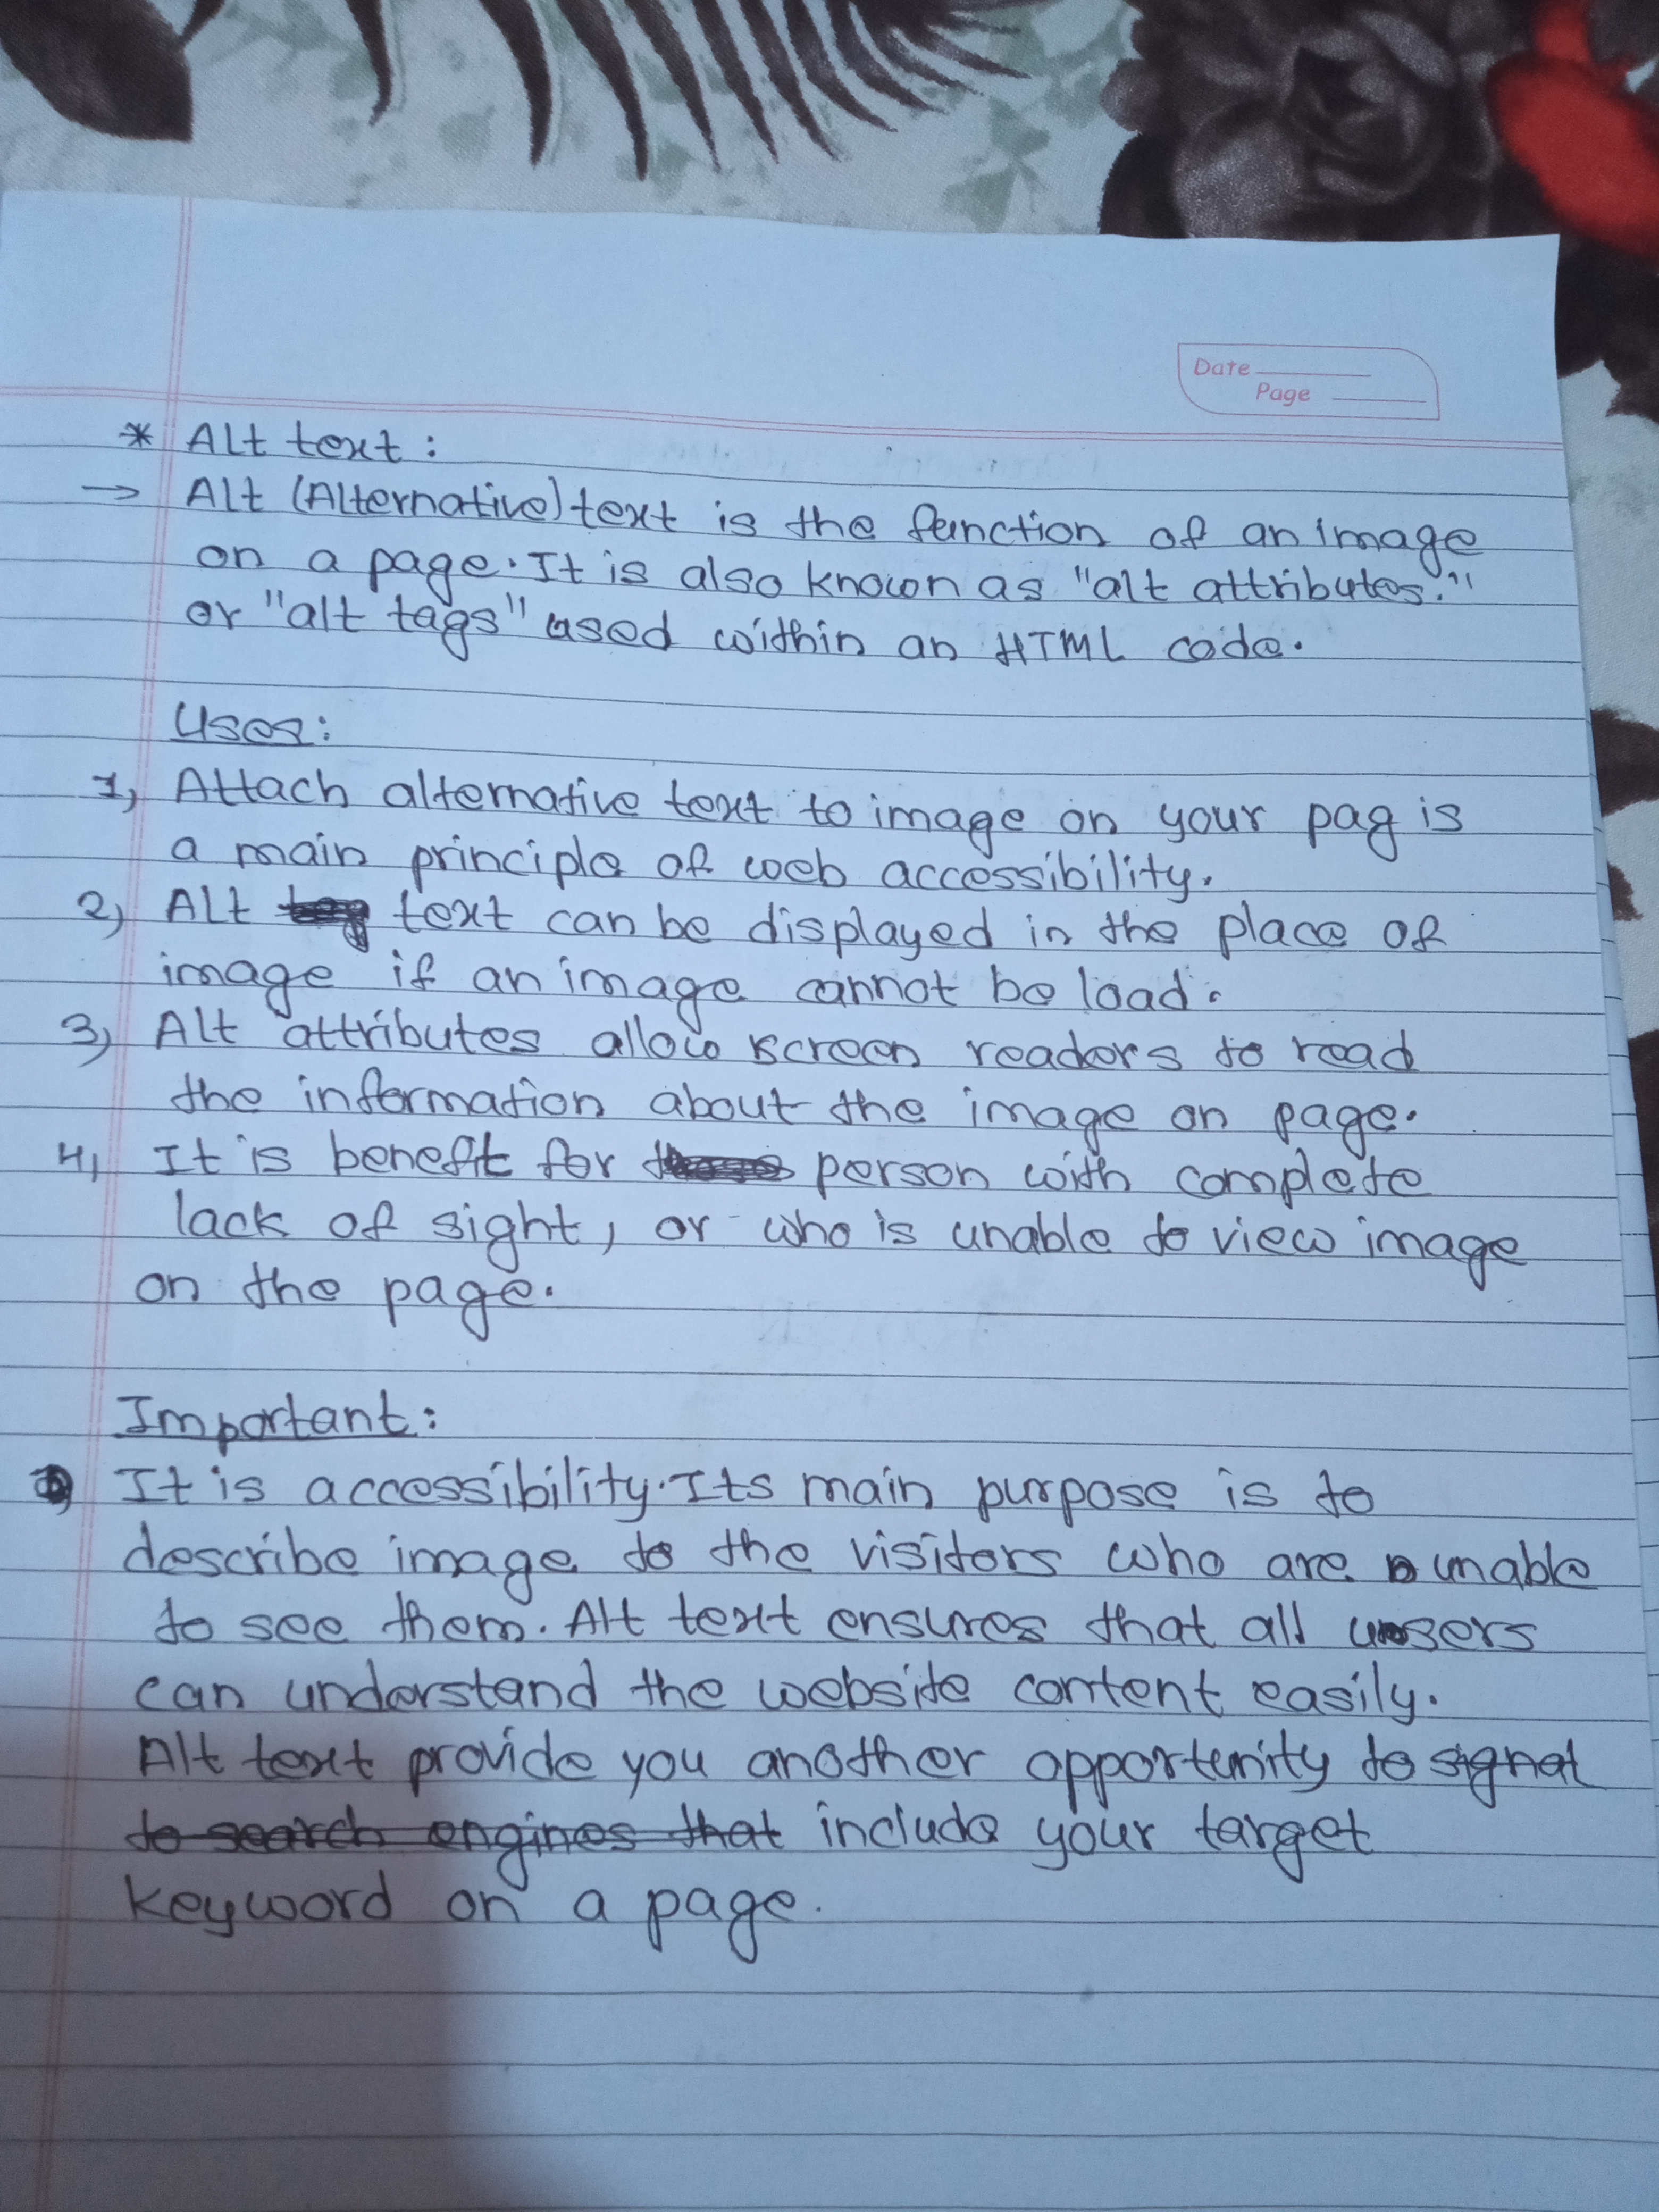 Date
Page
* Alt text :
→ Alt (Alternative) text is the function of an image
on a page. It is also known as "alt attributes."
or "alt tags" used within an HTML code.
Uses:
1) Attach alternative text to image on your pag is
a main principle of web accessibility.
2) Alt text can be displayed in the place of
image if an image cannot be load.
3) Alt attributes allow screen readers to read
the information about the image on page.
4) It is benefit for person with complete
lack of sight, or who is unable to view image
on the page.
Important:
It is accessibility. Its main purpose is to
describe image to the visitors who are unable
to see them. Alt text ensures that all users
can understand the website content easily.
Alt text provide you another opportunity to signal
to search engines that include your target
keyword on a page.